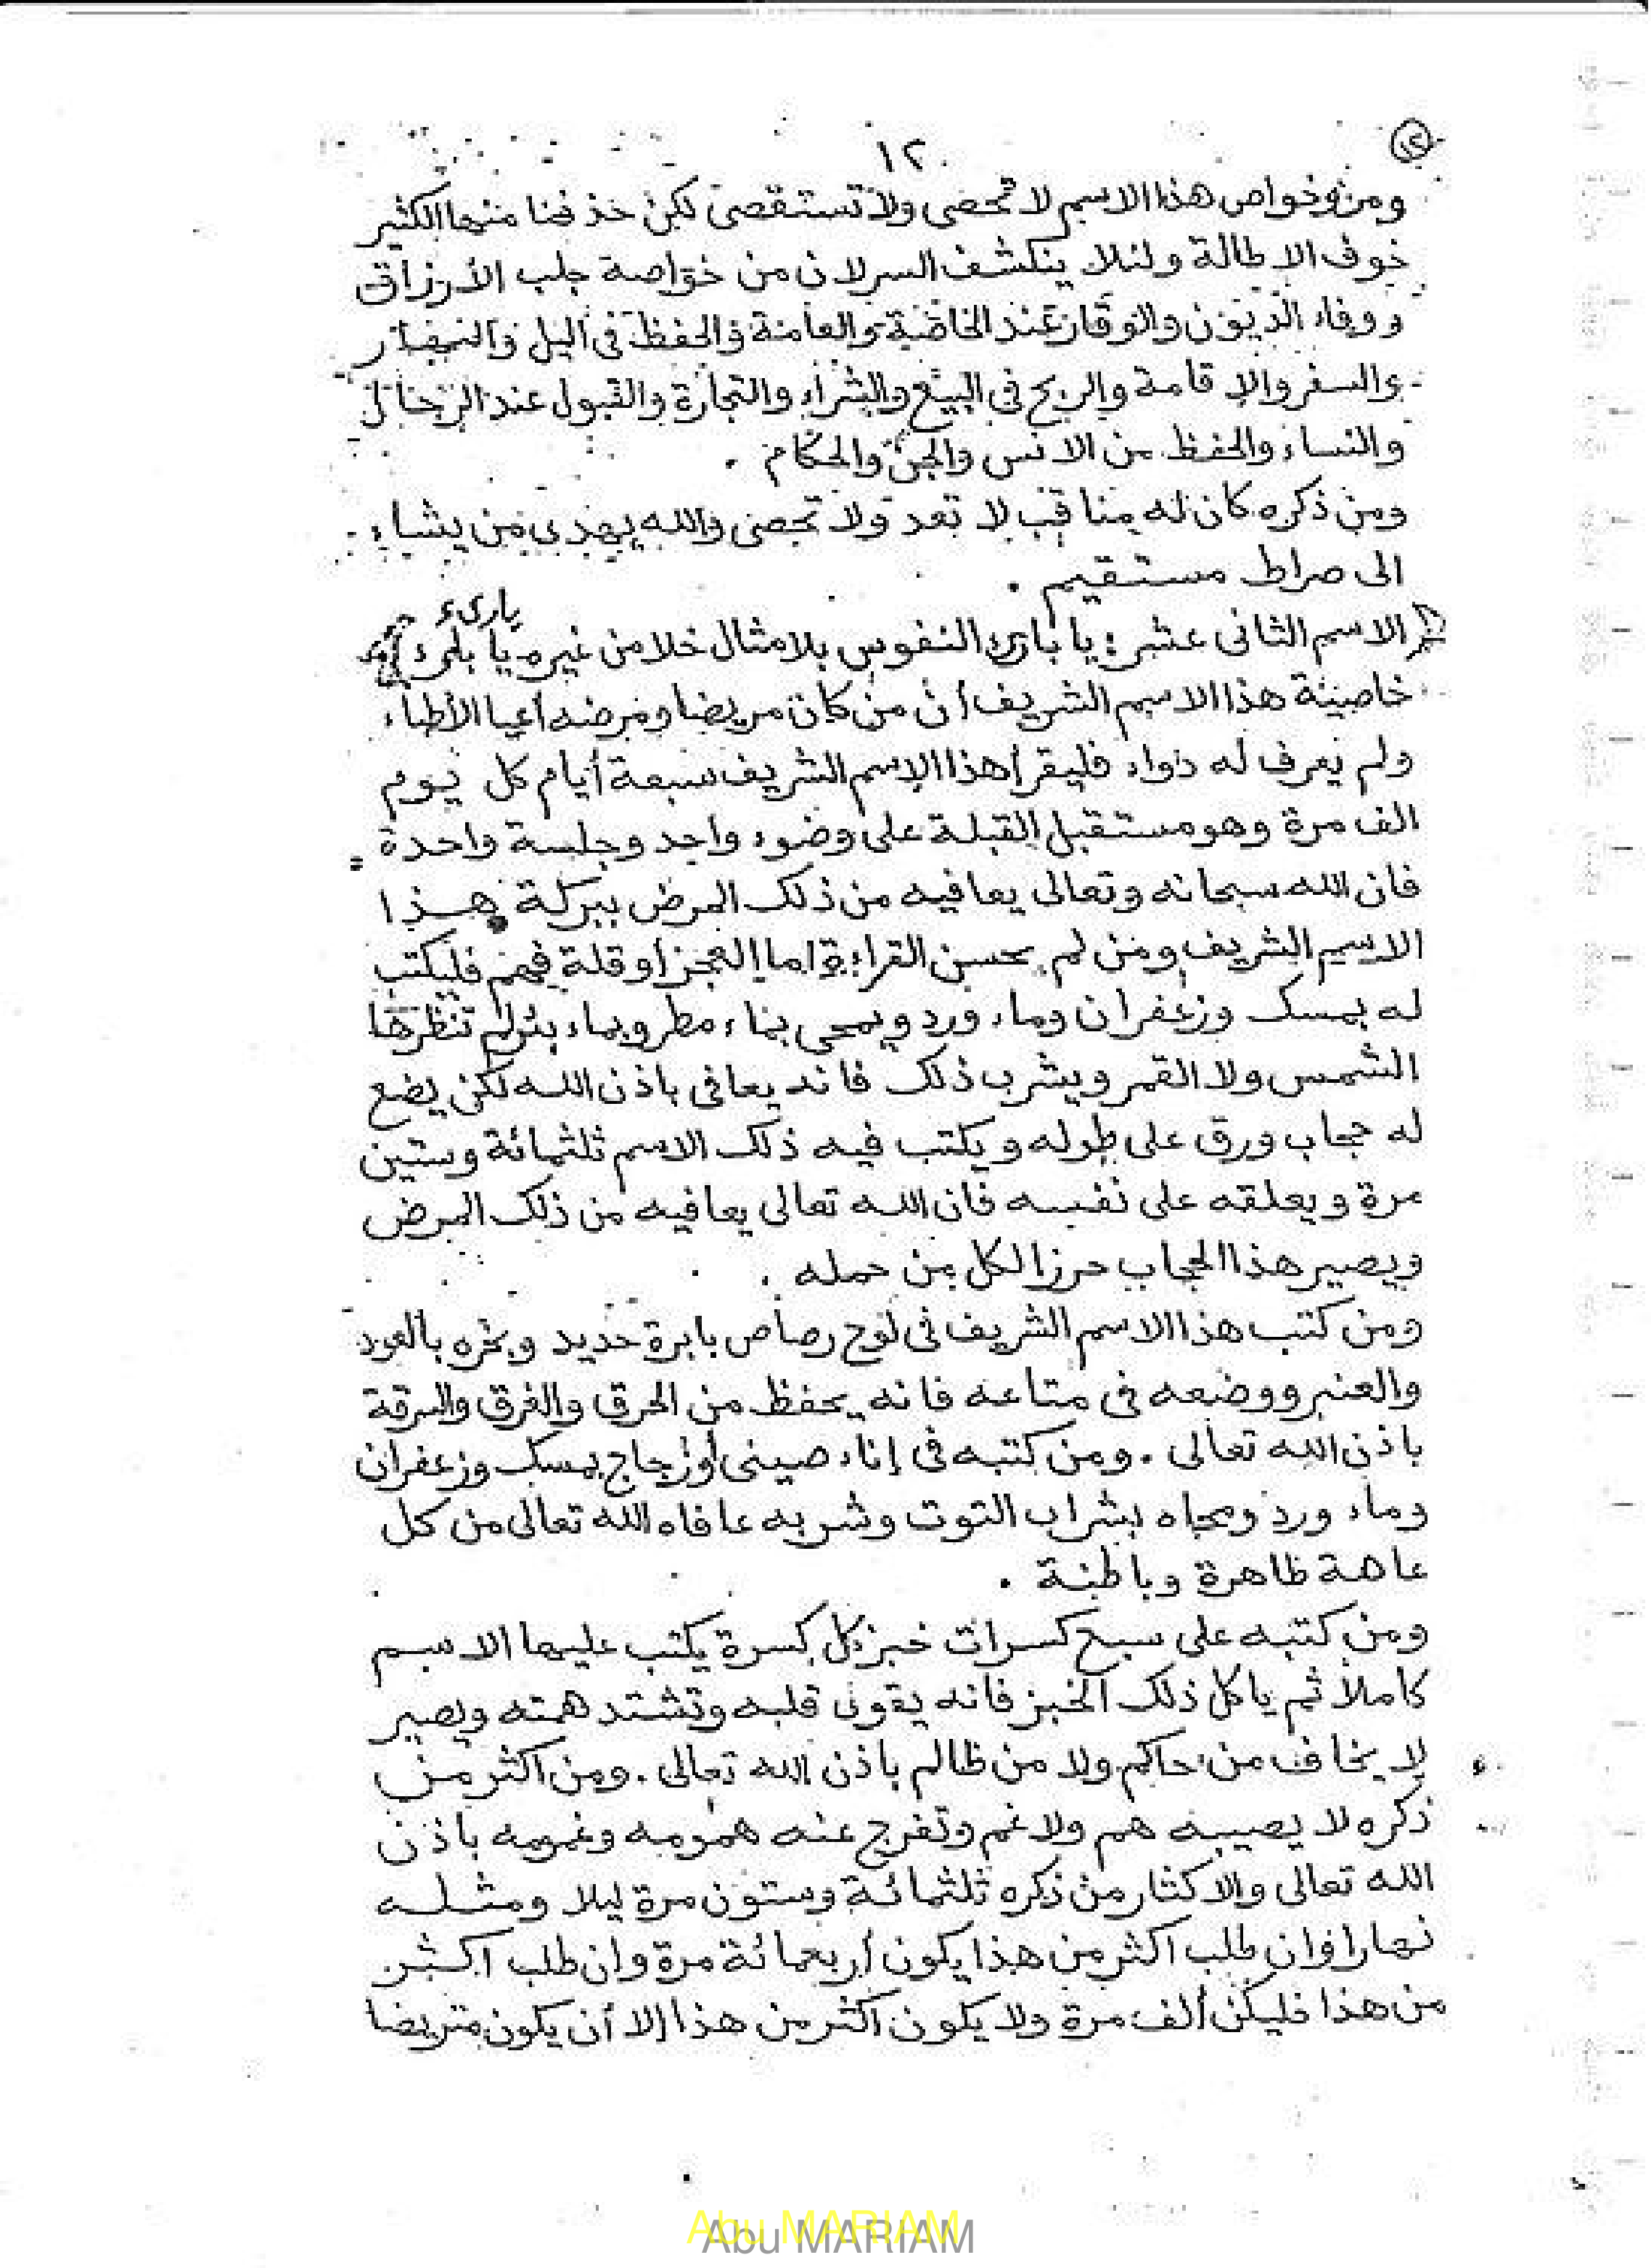 ١٢
١٢
ومن خواص هذا الاسم لا تحصى ولا تستقصى لكن حذفنا منها الكثير
خوف الاطالة ولئلا ينكشف السر لان من خواصة جلب الأرزاق
ووفاء الديون والوقار عند الخاصة والعامة والحفظ في اليل والنهار
والسفر والاقامة والربح في البيع والشراء والتجارة والقبول عند الرجال
والنساء والحفظ من الانس والجن والحكام .
ومن ذكره كان له مناقب لا تعد ولا تحصى والله يهدى من يشاء
الى صراط مستقيم .
يارىء
الاسم الثانى عشر : يا بارئ النفوس بلا مثال خلا من غيره يا بارىء
خاصية هذا الاسم الشريف أن من كان مريضا ومرضه أعيا الأطباء
ولم يعرف له دواء فليقرأ هذا الإسم الشريف سبعة أيام كل يوم
الف مرة وهو مستقبل القبلة على وضوء واحد وجلسة واحدة
فان الله سبحانه وتعالى يعافيه من ذلك المرض ببركة هذا
الاسم الشريف ومن لم يحسن القراءة اما العجز أو قلة فهم فليكتب
له بمسك وزعفران وماء ورد ويمحى بماء مطر وبماء بئر لم تنظرها
الشمس ولا القمر ويشرب ذلك فانه يعافى باذن الله لكن يضع
له حجاب ورق على طوله ويكتب فيه ذلك الاسم ثلثمائة وستين
مرة ويعلقه على نفسه فان الله تعالى يعافيه من ذلك المرض
ويصير هذا الحجاب حرزا لكل من حمله .
ومن كتب هذا الاسم الشريف في لوح رصاص بابرة حديد وبخره بالعود
والعنبر ووضعه في متاعه فانه يحفظ من الحرق والغرق والسرقة
باذن الله تعالى . ومن كتبه في إناء صينى أو زجاج بمسك وزعفران
وماء ورد ومحاه بشراب التوت وشربه عافاه الله تعالى من كل
عاهة ظاهرة وباطنة .
ومن كتبه على سبع كسرات خبز كل كسرة يكتب عليها الاسم
كاملا ثم ياكل ذلك الخبز فانه يقوى قلبه وتشتد همته ويصير
لا يخاف من حاكم ولا من ظالم باذن الله تعالى . ومن اكثر من
ذكره لا يصيبه هم ولا غم وتفرج عنه همومه وغمومه باذن
الله تعالى والاكثار من ذكره ثلثمائة وستون مرة ليلا ومثله
نهارا وان طلب اكثر من هذا يكون أربعمائة مرة وان طلب اكثر
من هذا فليكن ألف مرة ولا يكون اكثر من هذا إلا أن يكون مريضا
Abu MARIAM
Abu MARIAM